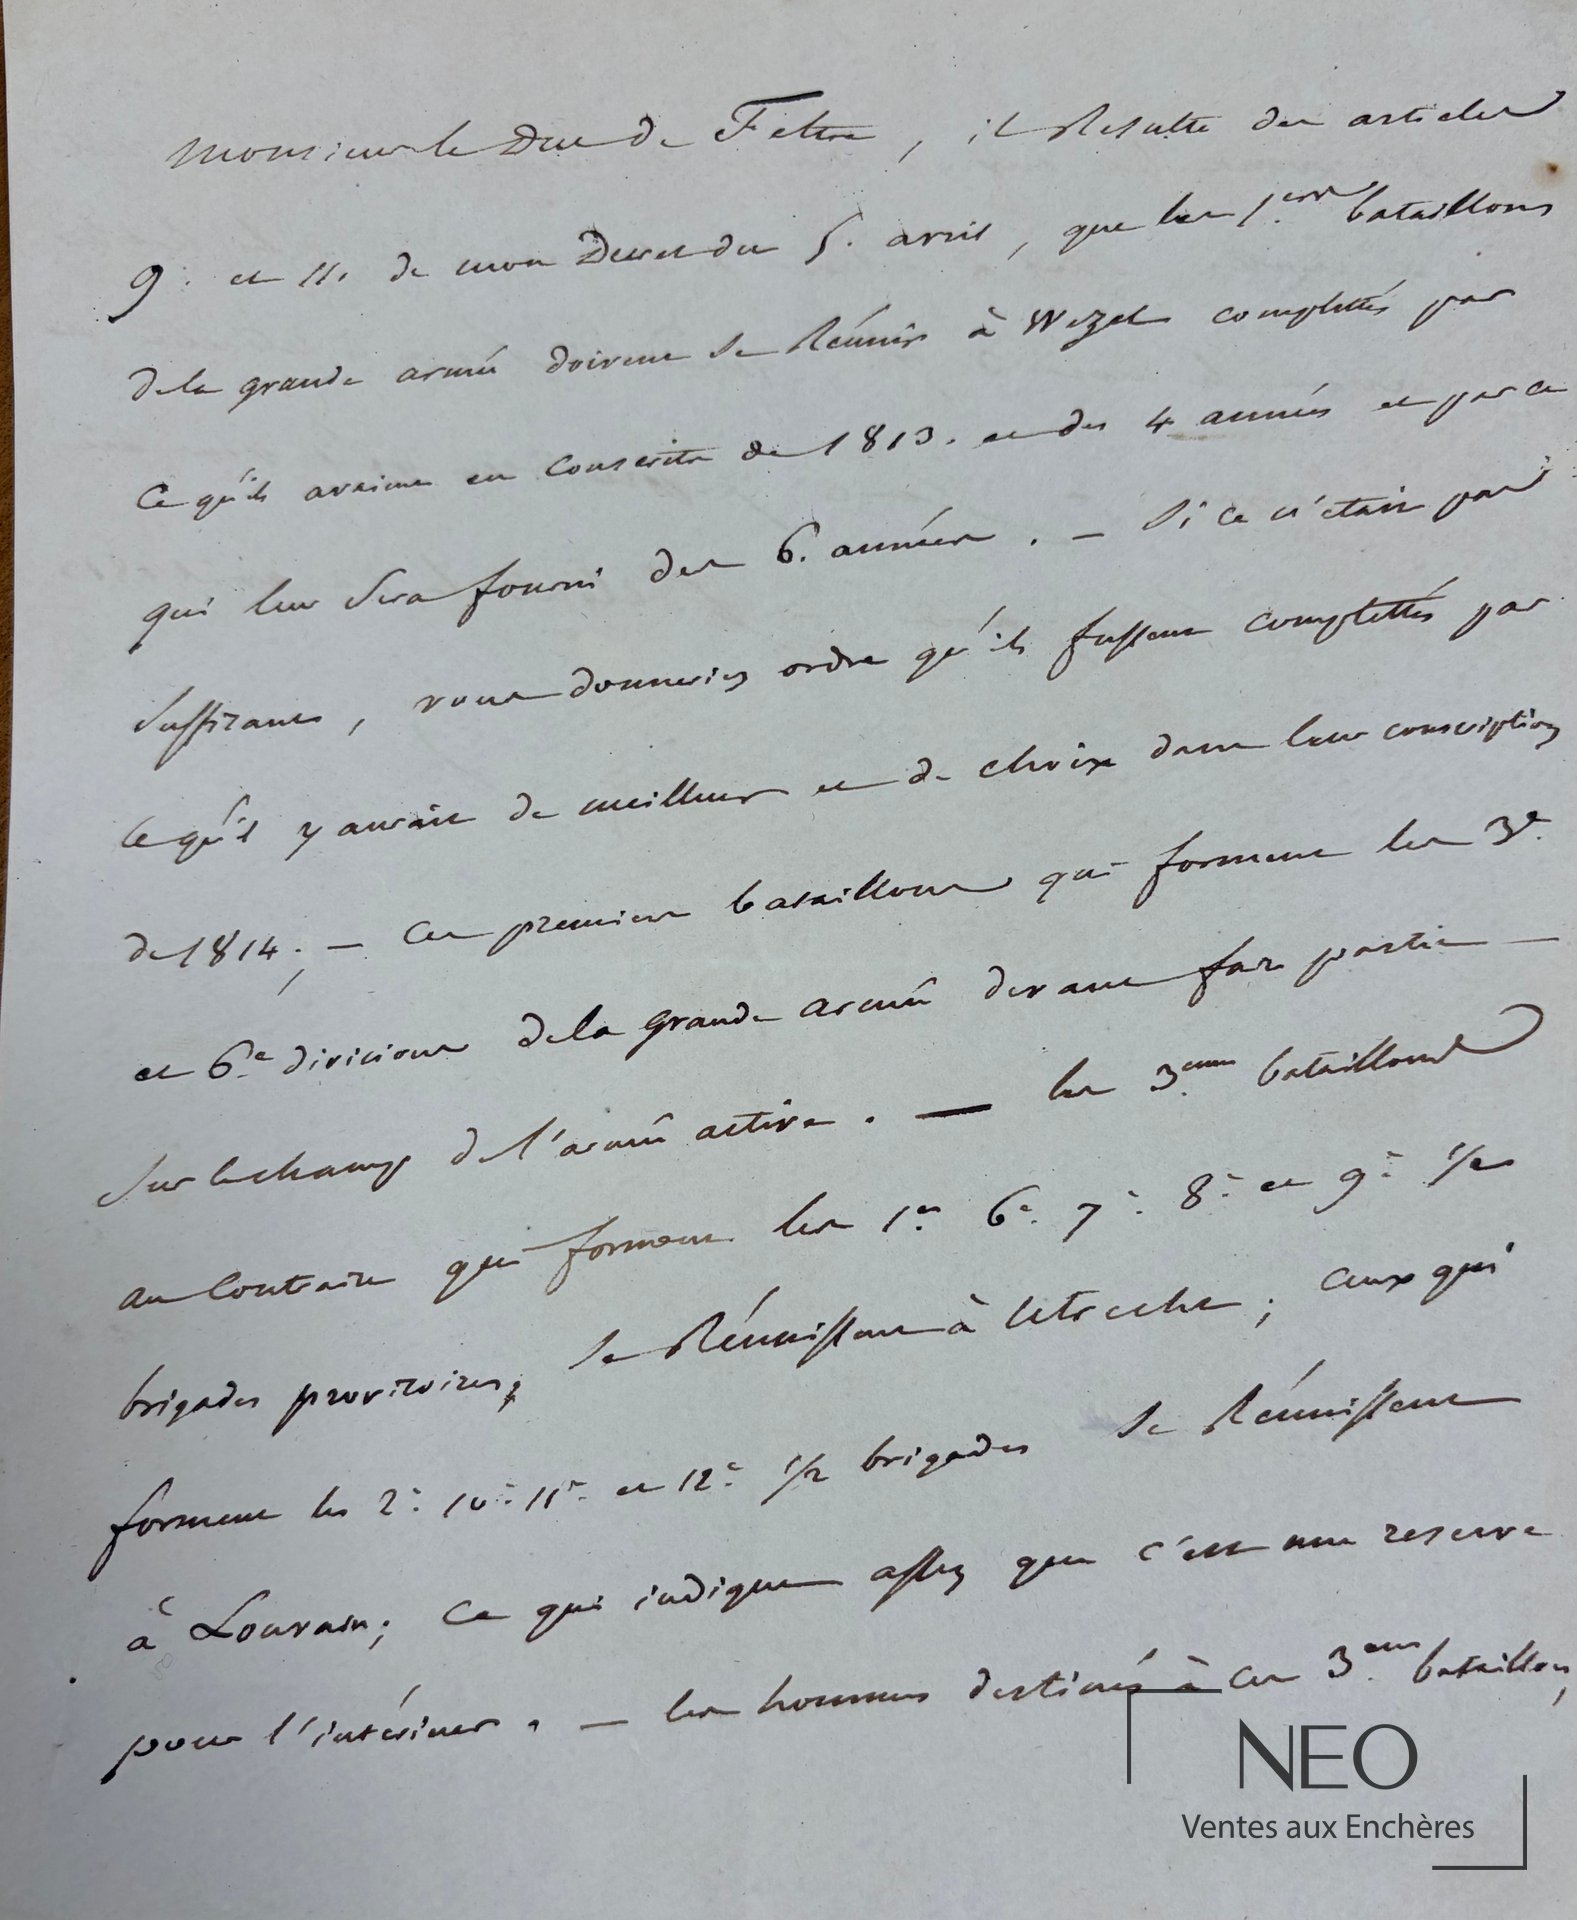 Monsieur le Duc de Feltre, il Résulte des articles
9. et 11. de mon Decret du 5. avril, que les 1.ers bataillons
de la grande armée doivent se Réunir à Wezel complettés par
ce qu'ils avaient en Conscrits de 1813. et des 4 années et par ce
qui leur sera fourni des 6. années. — Si ce n'était pas
suffizant, vous donneriez ordre qu'ils fussent complettés par
ce qu'il y aurait de meilleur et de choix dans leur conscription
de 1814; — Ces premiers bataillons qui forment les 3e.
et 6.e divisions de la grande armée devant faire partie —
sur le champ de l'armée active. — les 3.emes bataillons
au Contraire qui forment les 1.er 6.e 7.e 8.e et 9.e 1/2
brigades provizoires, se Réunissent à Utrecht; Ceux qui
forment les 2.e 10.e 11.e et 12.e 1/2 brigades se Réunissent
à Louvain; Ce qui indique assez que c'est une reserve
pour l'intérieur. — les hommes destinés à ces 3.emes bataillons,
NEO
Ventes aux Enchères